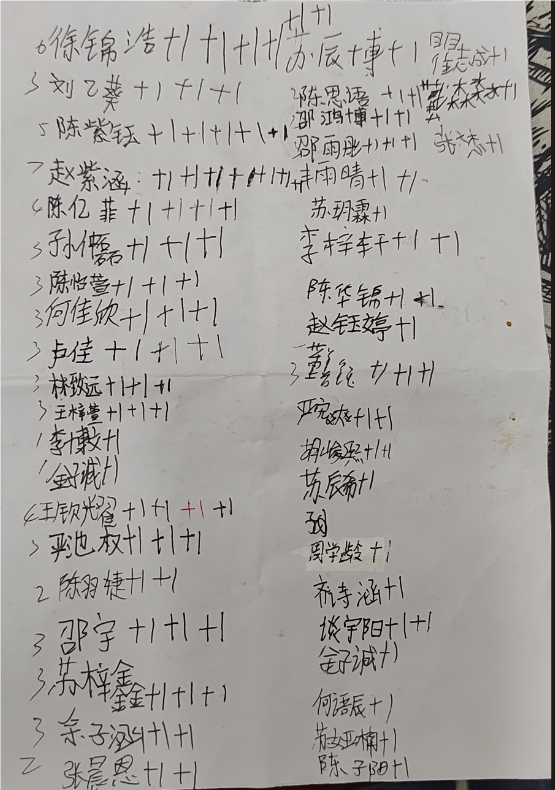 6 徐锦浩 +1 +1 +1 +1 +1 +1
3 刘乙葵 +1 +1 +1
5 陈紫钰 +1 +1 +1 +1 +1
7 赵紫涵: +1 +1 +1 +1 +1 +1 +1
4 陈亿菲 +1 +1 +1 +1
3 孙仲磊 +1 +1 +1
3 陈怡萱 +1 +1 +1
3 何佳欣 +1 +1 +1
3 卢佳 +1 +1 +1
3 林致远 +1 +1 +1
3 王梓萱 +1 +1 +1
1 李博毅 +1
1 金子诚 +1
4 王钦耀 +1 +1 +1 +1
3 严池权 +1 +1 +1
2 陈羽婕 +1 +1
3 邵宇 +1 +1 +1
3 苏梓鑫 +1 +1 +1
3 余子涵 +1 +1
2 张晨恩 +1 +1
苏辰博 +1
2 陈思语 +1 +1
邵鸿博 +1 +1
邵雨彤 +1 +1 +1
雨晴 +1 +1
苏玥霖 +1
李梓轩 +1 +1
陈华锦 +1 +1
赵钰婷 +1
3 +1 +1 +1
+1 +1
+1 +1
苏辰希 +1
周学龄 +1
涵 +1
宇阳 +1 +1
金子诚 +1
何语辰 +1
苏楠 +1
陈子阳 +1
徐志成 +1
张杰 +1